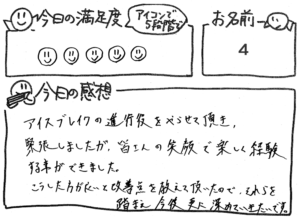 今日の満足度
アイコンで
5段階で
お名前
4
今日の感想
アイスブレイクの進行役をやらせて頂き、
緊張しましたが、皆さんの笑顔で楽しく経験
する事ができました。
こうした方がいいと改善点を教えて頂いたので、それらを
踏まえ 今後 更に 深めていきたいです。